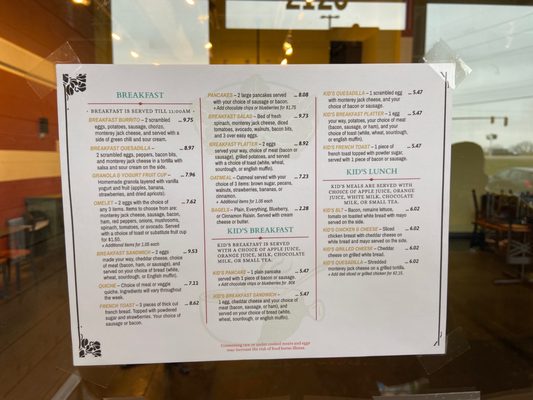 2126
BREAKFAST
BREAKFAST IS SERVED TILL 11:00AM
BREAKFAST BURRITO – 2 scrambled ... 9.75
eggs, potatoes, sausage, chorizo,
monterey jack cheese, served with a
side of green chili and sour cream.
BREAKFAST QUESADILLA – ... 8.97
2 scrambled eggs, peppers, bacon bits,
and monterey jack cheese in a tortilla with
salsa and sour cream on the side.
GRANOLA & YOGURT FRUIT CUP – ... 7.96
Homemade granola layered with vanilla
yogurt and fruit (apples, banana,
strawberries, and dried apricots).
OMELET – 2 eggs with the choice of ... 7.62
any 3 items. Items to choose from are:
monterey jack cheese, sausage, bacon,
ham, red peppers, onions, mushrooms,
spinach, tomatoes, or avocado. Served
with a choice of toast or substitute fruit cup
for $1.50.
+ Additional items for 1.00 each
BREAKFAST SANDWICH – 2 eggs ... 9.53
made your way, cheddar cheese, choice
of meat (bacon, ham, or sausage) served
on your choice of bread (white,
wheat, sourdough, or English muffin).
QUICHE – Choice of meat or veggie ... 7.11
quiche. Ingredients will vary throughout
the week.
FRENCH TOAST – 3 pieces of thick cut ... 8.62
french bread. Topped with powdered
sugar and strawberries. Your choice of
sausage or bacon.
PANCAKES – 2 large pancakes served ... 8.08
with your choice of sausage or bacon.
+ Add chocolate chips or blueberries for $1.75
BREAKFAST SALAD – Bed of fresh ... 9.73
spinach, monterey jack cheese, diced
tomatoes, avocado, walnuts, bacon bits,
and 3 over easy eggs.
BREAKFAST PLATTER – 2 eggs ... 8.92
served your way, choice of meat (bacon or
sausage), grilled potatoes, and served
with a choice of toast (white, wheat,
sourdough, or english muffin).
OATMEAL – Oatmeal served with your ... 7.23
choice of 3 items: brown sugar, pecans,
walnuts, strawberries, bananas, or
cinnamon.
+ Additional items for 1.05 each
BAGELS – Plain, Everything, Blueberry, ... 2.28
or Cinnamon Raisin. Served with cream
cheese or butter.
KID'S BREAKFAST
KID'S BREAKFAST IS SERVED
WITH A CHOICE OF APPLE JUICE,
ORANGE JUICE, MILK, CHOCOLATE
MILK, OR SMALL TEA.
KID'S PANCAKE – 1 plain pancake ... 5.47
served with 1 piece of bacon or sausage.
+ Add chocolate chips or blueberries for .90¢
KID'S BREAKFAST SANDWICH – ... 5.47
1 egg, cheddar cheese and your choice of
meat (bacon, sausage, or ham), and
served on your choice of bread (white,
wheat, sourdough, or english muffin).
KID'S QUESADILLA – 1 scrambled egg ... 5.47
with monterey jack cheese, and your
choice of bacon or sausage.
KID'S BREAKFAST PLATTER – 1 egg ... 5.47
your way, potatoes, your choice of meat
(bacon, sausage, or ham), and your
choice of toast (white, wheat, sourdough,
or english muffin).
KID'S FRENCH TOAST – 1 piece of ... 5.47
french toast topped with powder sugar.
served with 1 piece of bacon or sausage.
KID'S LUNCH
KID'S MEALS ARE SERVED WITH
CHOICE OF APPLE JUICE, ORANGE
JUICE, WHITE MILK, CHOCOLATE
MILK, OR SMALL TEA.
KID'S BLT – Bacon, romaine lettuce, ... 6.02
tomato on toasted white bread with mayo
served on the side.
KID'S CHICKEN & CHEESE – Sliced ... 6.02
chicken breast with cheddar cheese on
white bread and mayo served on the side.
KID'S GRILLED CHEESE – Cheddar ... 6.02
cheese on grilled white bread.
KID'S QUESADILLA – Shredded ... 6.02
monterey jack cheese on a grilled tortilla.
+ Add deli sliced or grilled chicken for $2.15.
Consuming raw or under cooked meats and eggs
may increase the risk of food borne illness.